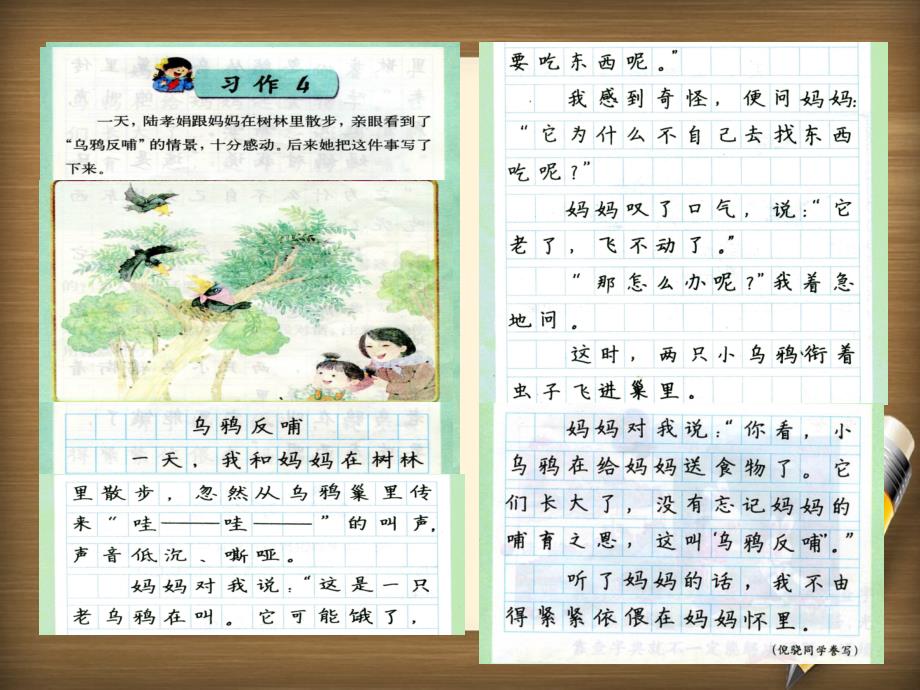 习作4
一天，陆孝娟跟妈妈在树林里散步，亲眼看到了
“乌鸦反哺”的情景，十分感动。后来她把这件事写了
下来。
乌鸦反哺
一天，我和妈妈在树林
里散步，忽然从乌鸦巢里传
来“哇——哇——”的叫声，
声音低沉、嘶哑。
妈妈对我说：“这是一只
老乌鸦在叫。它可能饿了，
要吃东西呢。”
我感到奇怪，便问妈妈：
“它为什么不自己去找东西
吃呢？”
妈妈叹了口气，说：“它
老了，飞不动了。”
“那怎么办呢？”我着急
地问。
这时，两只小乌鸦衔着
虫子飞进巢里。
妈妈对我说：“你看，小
乌鸦在给妈妈送食物了。它
们长大了，没有忘记妈妈的
哺育之恩，这叫‘乌鸦反哺’。”
听了妈妈的话，我不由
得紧紧依偎在妈妈怀里。
（倪骁同学誊写）